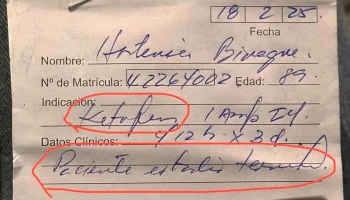 18 2 25.
Fecha
Nombre: Hortensia Binaque.
Nº de Matrícula: 42264002 Edad: 89
Indicación:
Ketofen 1 Amp IM
Datos Clínicos: c/12h x 3d.
Paciente estadio terminal.